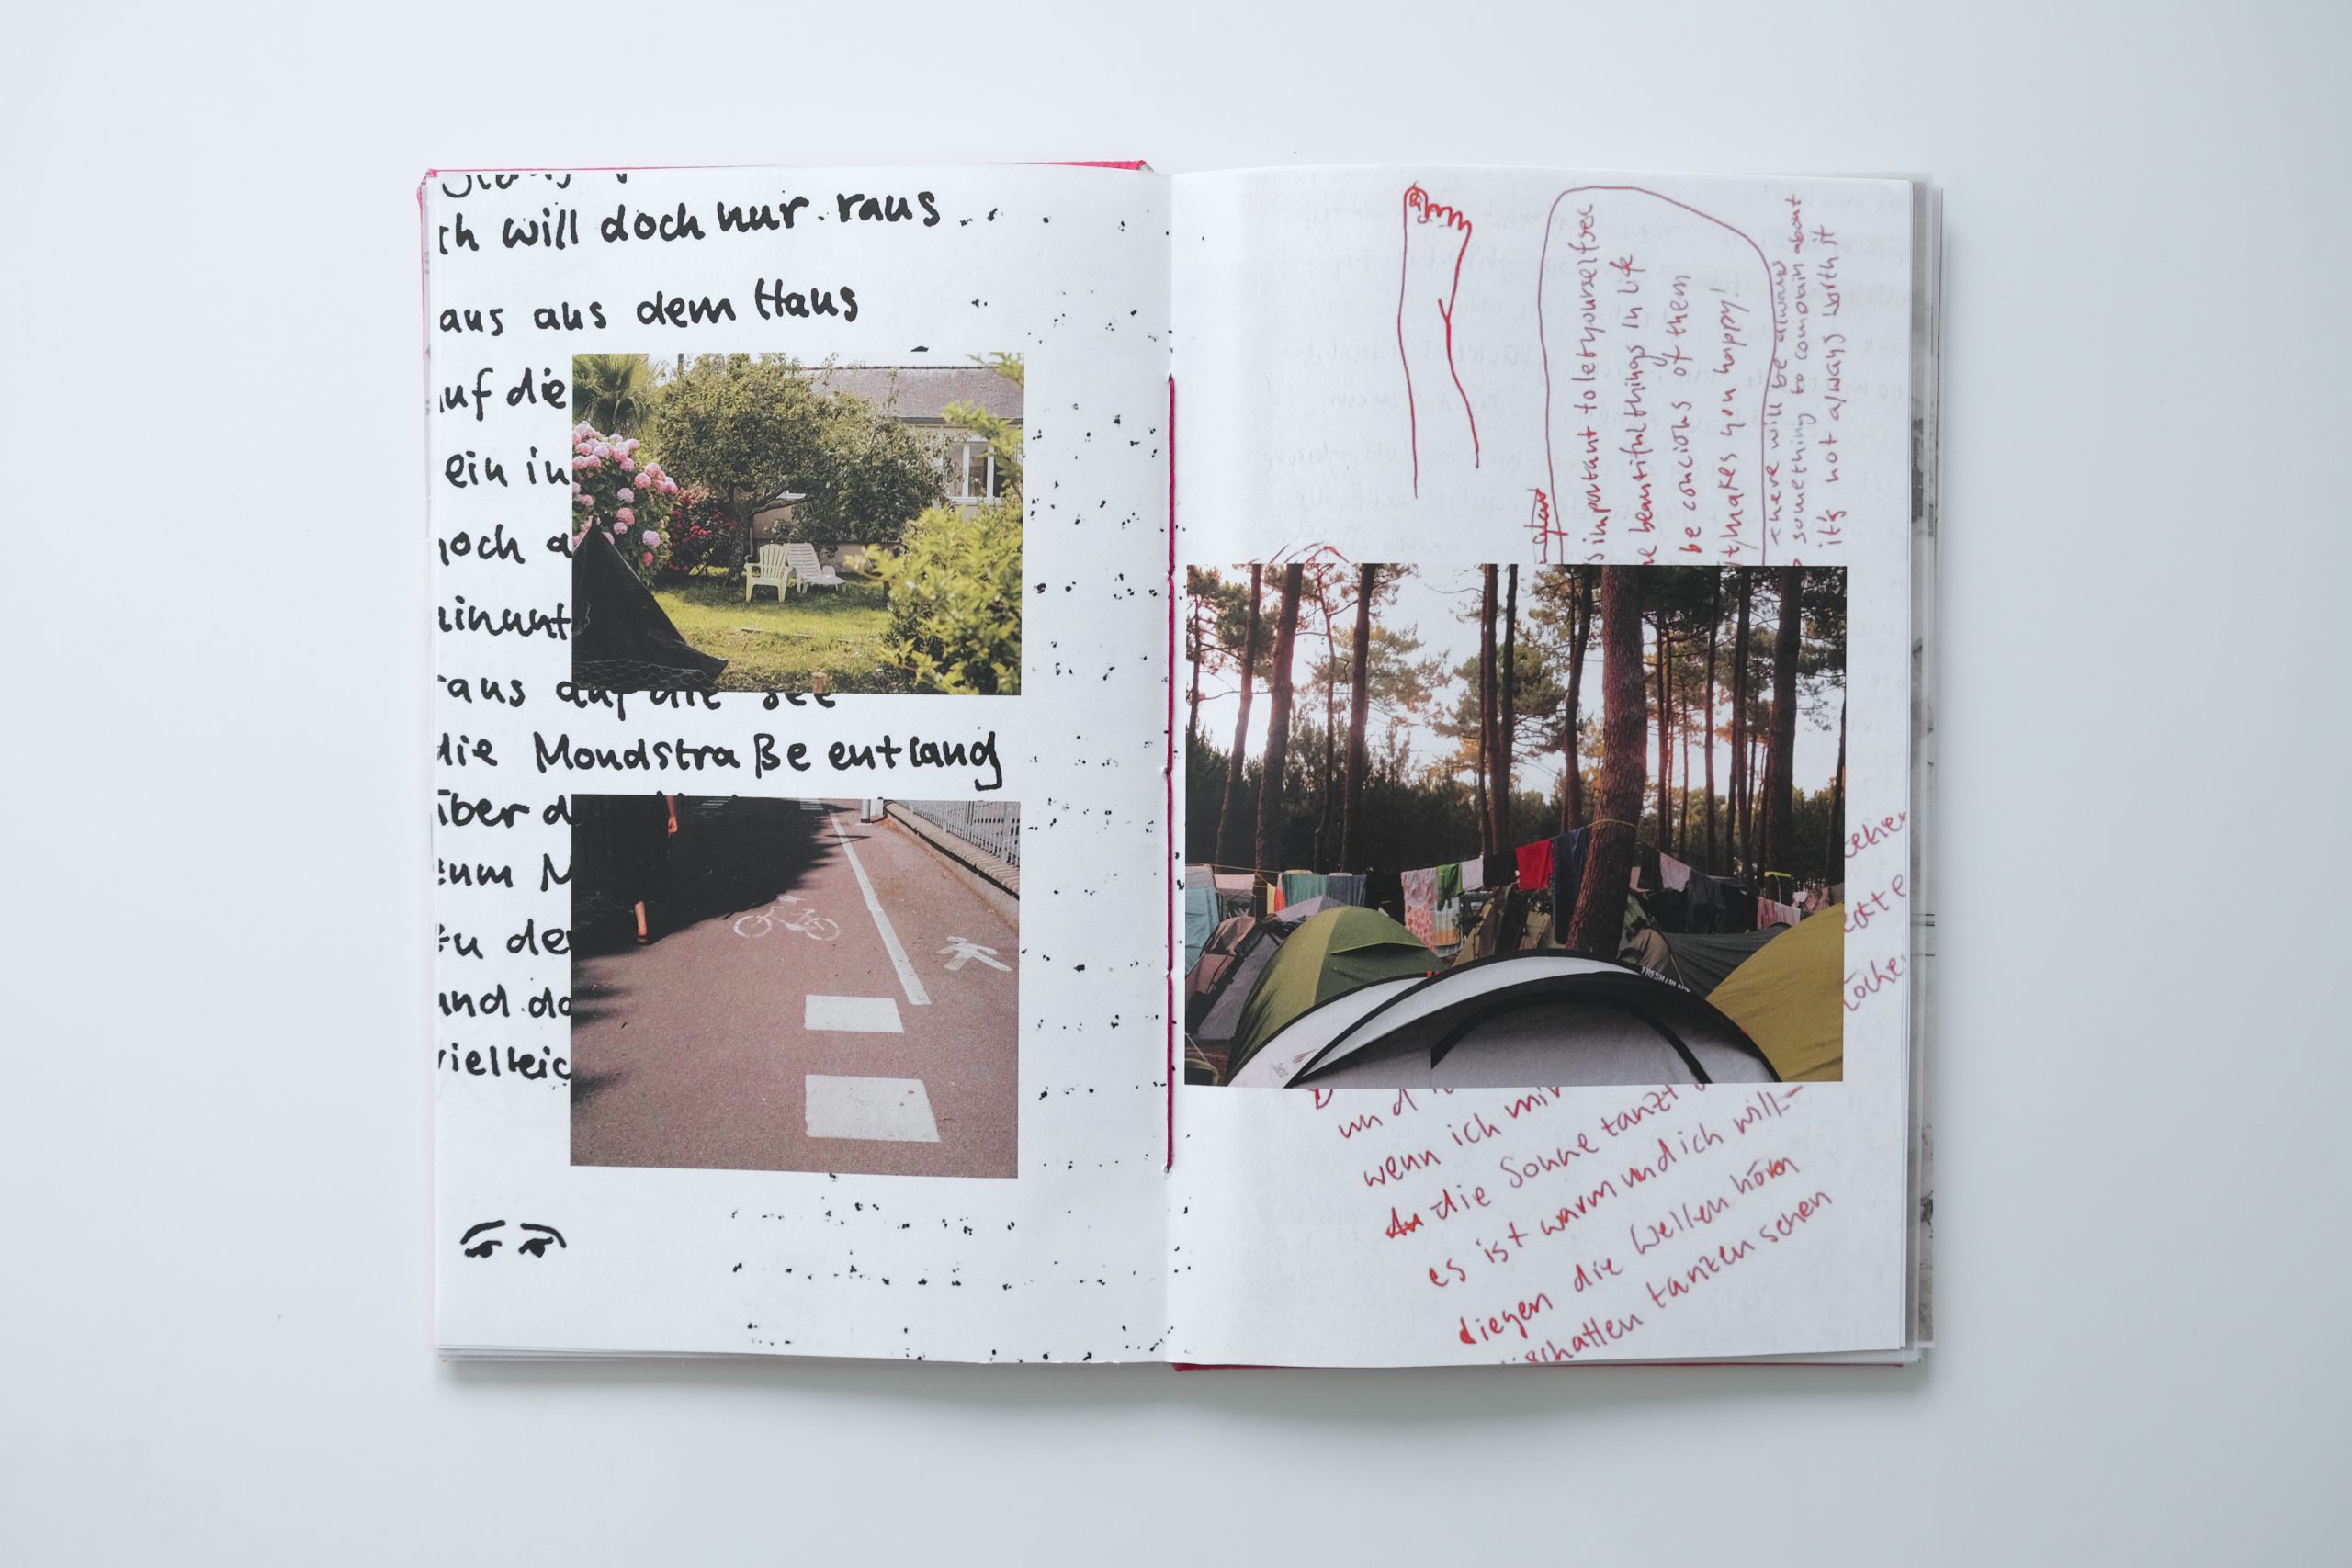 ch will doch nur raus
aus aus dem Haus
auf die
ein in
noch a
hinunt
raus auf die See
die Mondstraße entlang
über d
zum M
zu der
und da
vielleic
s important to let yourself see
he beautiful things in life
be concious of them
t makes you happy.
there will be always
something to complain about
it's not always worth it
und i
wenn ich mir
die Sonne tanzt
es ist warm und ich will
liegen die Wellen hören
schatten tanzen sehen